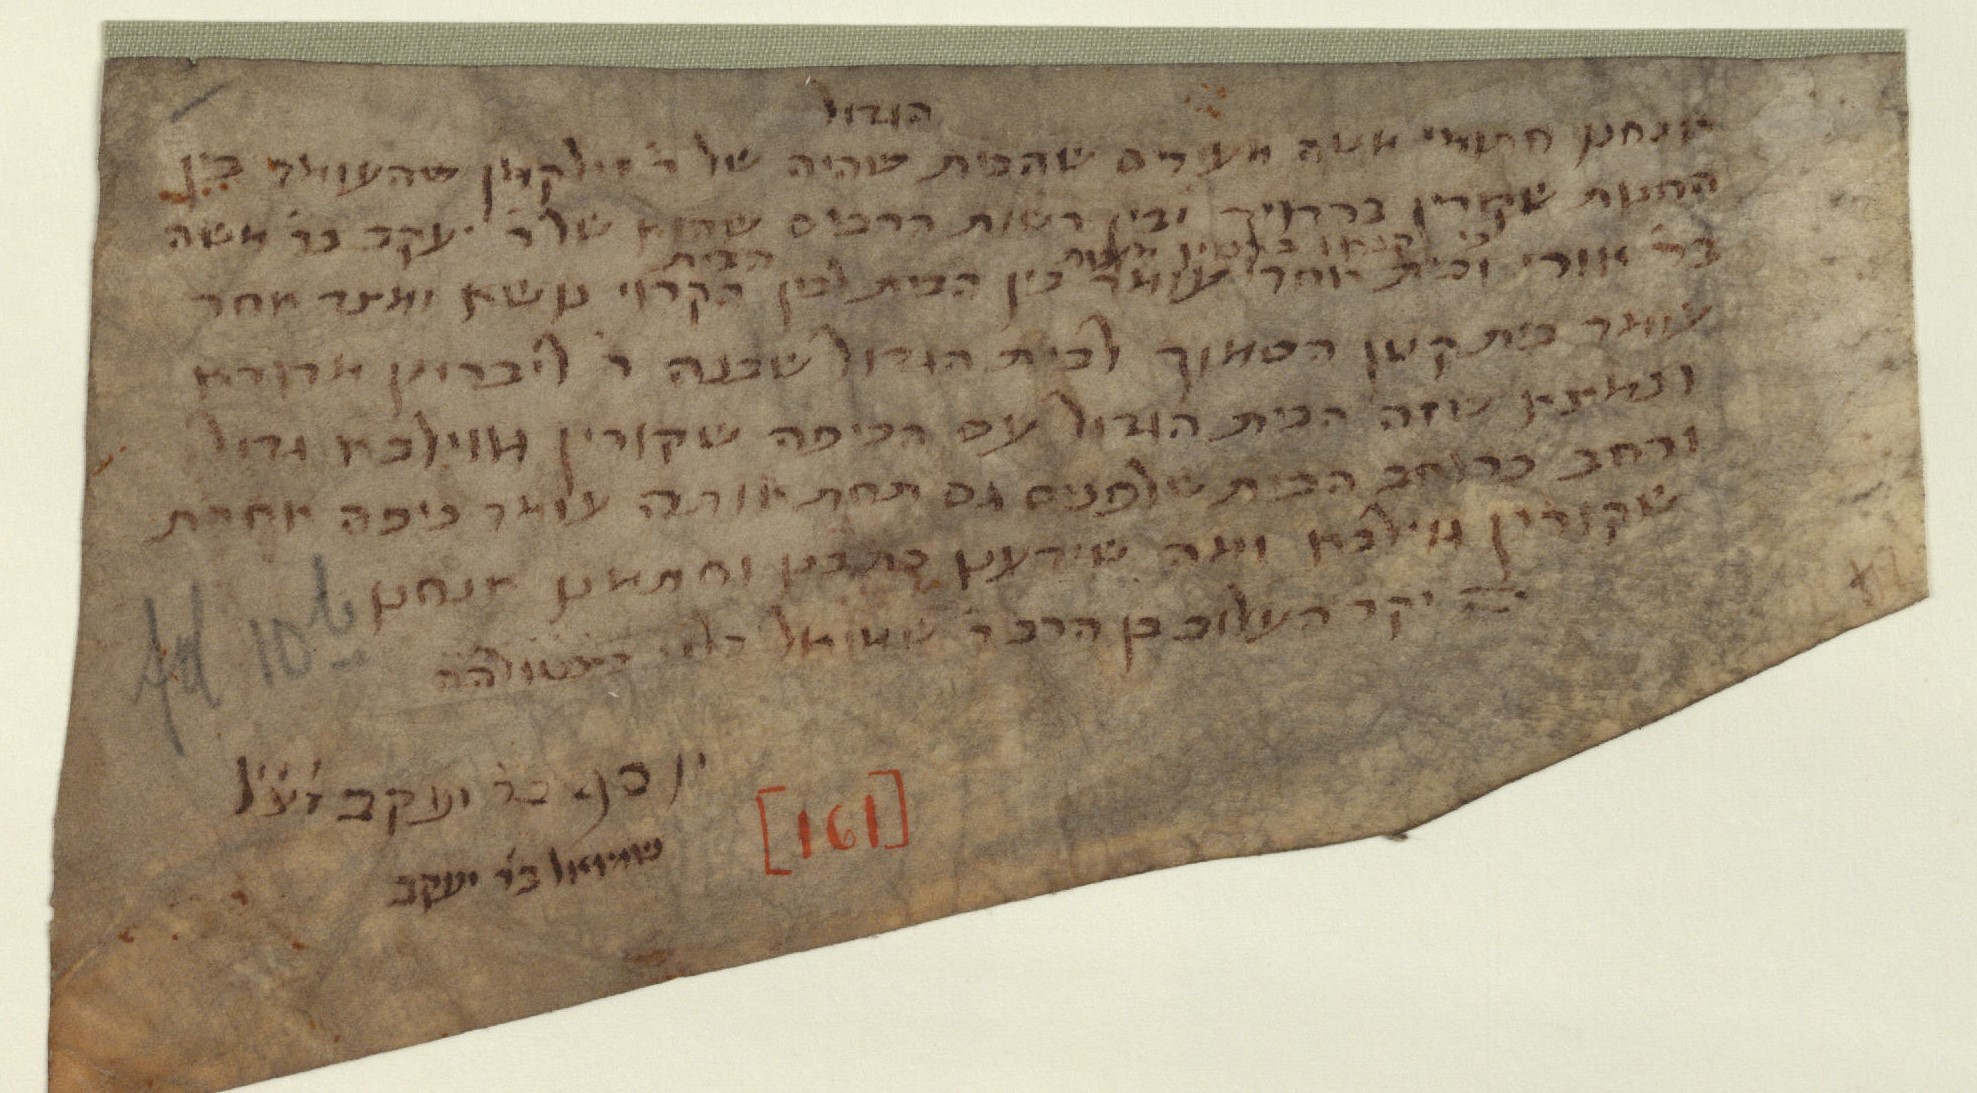 הגדול
אנחנו חתומי מטה מעידים שהבית שהיה של ר' שהעומד בין
החנות שקורין ובין רשות הרבים שהוא של ר' יעקב בר' משה
הבית
בר' אורי ובית אחר עומד בין הבית לבין הקרוי נושא ומצד אחד
עומד בית קטן הסמוך לבית הגדול שבנה ר' ליברמן
ונמצא שזה הבית הגדול עם הכיפה שקורין גווילבא גדול
ורחב כרוחב הבית שלפנים גם תחת אותה עומד כיפה אחרת
שקורין גוילבא ומה שידענו כתבנו וחתמנו אנחנו
יקר העלוב בן הרב ר' שמואל הלוי
יוסף בר' יעקב זצ"ל
שמואל בר' יעקב
Ad 10b
[161]